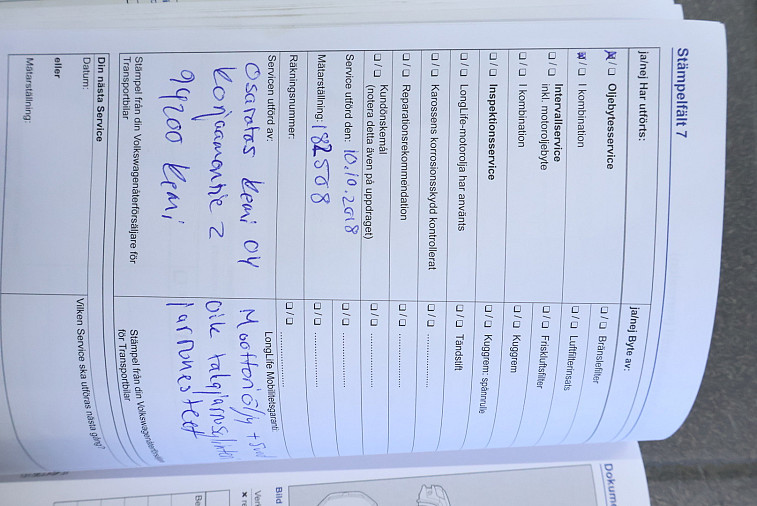 Stämpelfält 7
ja/nej Har utförts:
☒/☐ Oljebytesservice
☒/☐ I kombination
☐/☐ Intervallservice
inkl. motoroljebyte
☐/☐ I kombination
☐/☐ Inspektionsservice
☐/☐ LongLife-motorolja har använts
☐/☐ Karossens korrosionsskydd kontrollerat
☐/☐ Reparationsrekommendation
☐/☐ Kundönskemål
(notera detta även på uppdraget)
Service utförd den: 10.10.2018
Mätarställning: 182508
Räkningsnummer:
Servicen utförd av:
Osaratas Kemi OY
Korjaamontie 2
94200 Kemi
Stämpel från din Volkswagenåterförsäljare för
Transportbilar
Din nästa Service
Datum:
eller
Mätarställning:
ja/nej Byte av:
☐/☐ Bränslefilter
☐/☐ Luftfilterinsats
☐/☐ Friskluftsfilter
☐/☐ Kuggrem
☐/☐ Kuggrem: spännrulle
☐/☐ Tändstift
☐/☐ ................
☐/☐ ................
☐/☐ ................
☐/☐ ................
☐/☐ ................
☐/☐ ................
LongLife Mobilitetsgaranti:
Moottoriöljy +
oik takajarrusylinteri
jarrunesteet
Stämpel från din Volkswagenåterförsäljare
för Transportbilar
Vilken Service ska utföras nästa gång?
Dokume
Bild